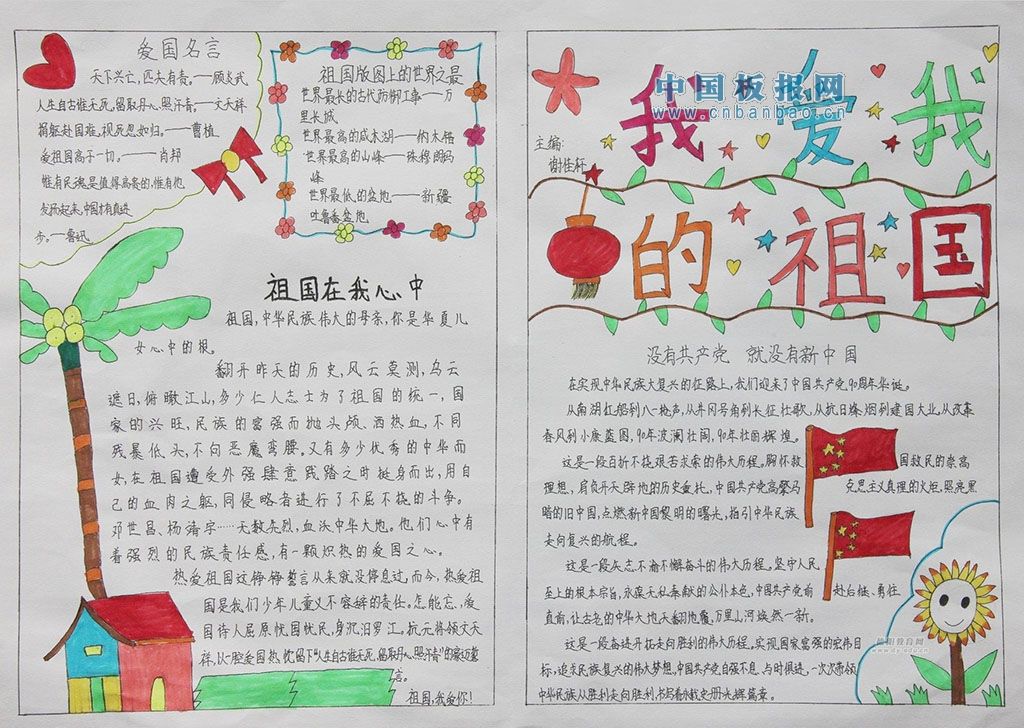 爱国名言
天下兴亡,匹夫有责。——顾炎武
人生自古谁无死,留取丹心照汗青。——文天祥
捐躯赴国难,视死忽如归。——曹植
爱祖国高于一切。——肖邦
惟有民魂是值得宝贵的,惟有他
发扬起来,中国才有真进
步。——鲁迅
祖国版图上的世界之最
世界最长的古代防御工事——万
里长城
世界最高的咸水湖——纳木错
世界最高的山峰——珠穆朗玛
峰
世界最低的盆地——新疆
吐鲁番盆地
祖国在我心中
祖国,中华民族伟大的母亲,你是华夏儿
女心中的根。
翻开昨天的历史,风云莫测,乌云
遮日,俯瞰江山,多少仁人志士为了祖国的统一,国
家的兴旺,民族的富强而抛头颅、洒热血,不同
残暴低头,不向恶魔弯腰。又有多少优秀的中华而
女,在祖国遭受外强肆意践踏之时挺身而出,用自
己的血肉之躯,同侵略者进行了不屈不挠的斗争。
邓世昌、杨靖宇……无数先烈,血沃中华大地。他们心中有
着强烈的民族责任感,有一颗炽热的爱国之心。
热爱祖国这铮铮誓言从来就没停息过,而今,热爱祖
国是我们少年儿童义不容辞的责任。怎能忘,爱
国诗人屈原忧国忧民,身沉汨罗江。抗元将领文天
祥,以一腔爱国热忱留下“人生自古谁无死,留取丹心照汗青”的豪迈誓
言。
祖国,我爱你!
中国板报网
www.cnbanbao.cn
我爱我
主编:
谢佳轩
的祖国
没有共产党 就没有新中国
在实现中华民族大复兴的征路上,我们迎来了中国共产党90周年华诞。
从南湖红船到八一枪声,从井冈号角到长征壮歌,从抗日烽烟到建国大业,从改革
春风到小康蓝图,90年波澜壮阔,90年壮丽辉煌。
这是一段百折不挠艰苦求索的伟大历程。胸怀救国救民的崇高
理想,肩负开天辟地的历史重托,中国共产党高擎马克思主义真理的火炬,照亮黑
暗的旧中国,点燃新中国黎明的曙光,指引中华民族
走向复兴的航程。
这是一段矢志不渝不懈奋斗的伟大历程。坚守人民
至上的根本宗旨,永葆无私奉献的公仆本色,中国共产党前赴后继、勇往
直前,让古老的中华大地天翻地覆,万里山河焕然一新。
这是一段奋进开拓走向胜利的伟大历程。实现国家富强的宏伟目
标,追求民族复兴的伟大梦想,中国共产党自强不息、与时俱进,一次次带领
中华民族从胜利走向胜利,书写着永载史册光辉篇章。